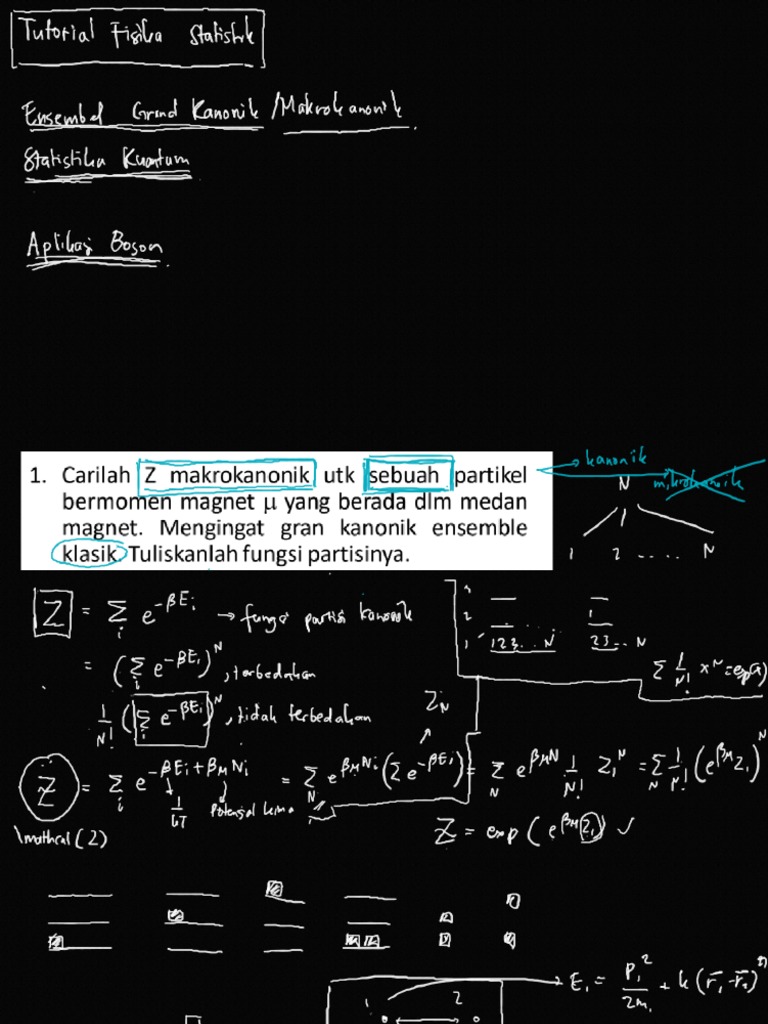 Tutorial Fisika Statistik
Ensembel Grand Kanonik / Makrokanonik.
Statistika Kuantum
Aplikasi Boson.
1. Carilah Z makrokanonik utk sebuah partikel
bermomen magnet μ yang berada dlm medan
magnet. Mengingat gran kanonik ensemble
klasik. Tuliskanlah fungsi partisinya.
kanonik
mikrokanonik
N
1 2 .... N
Z = Σ_i e^{-βE_i} → fungsi partisi kanonik
= (Σ_i e^{-βE_i})^N, terbedakan
1/N! (Σ_i e^{-βE_i})^N, tidak terbedakan
2
1 123... N 23... N
Σ 1/N! x^N = exp(x)
Z_N
Z = Σ_i e^{-βE_i + βμN_i} = Σ_N e^{βμN_i} (Σ e^{-βE_i}) = Σ_N e^{βμN} 1/N! Z_1^N = Σ_N 1/N! (e^{βμ} Z_1)^N
1/kT potensial kimia
\mathcal(Z)
Z = exp(e^{βμ} Z_1) ✓
E_1 = p_1^2/2m_1 + k(r_1 - r_2)^2
1 2